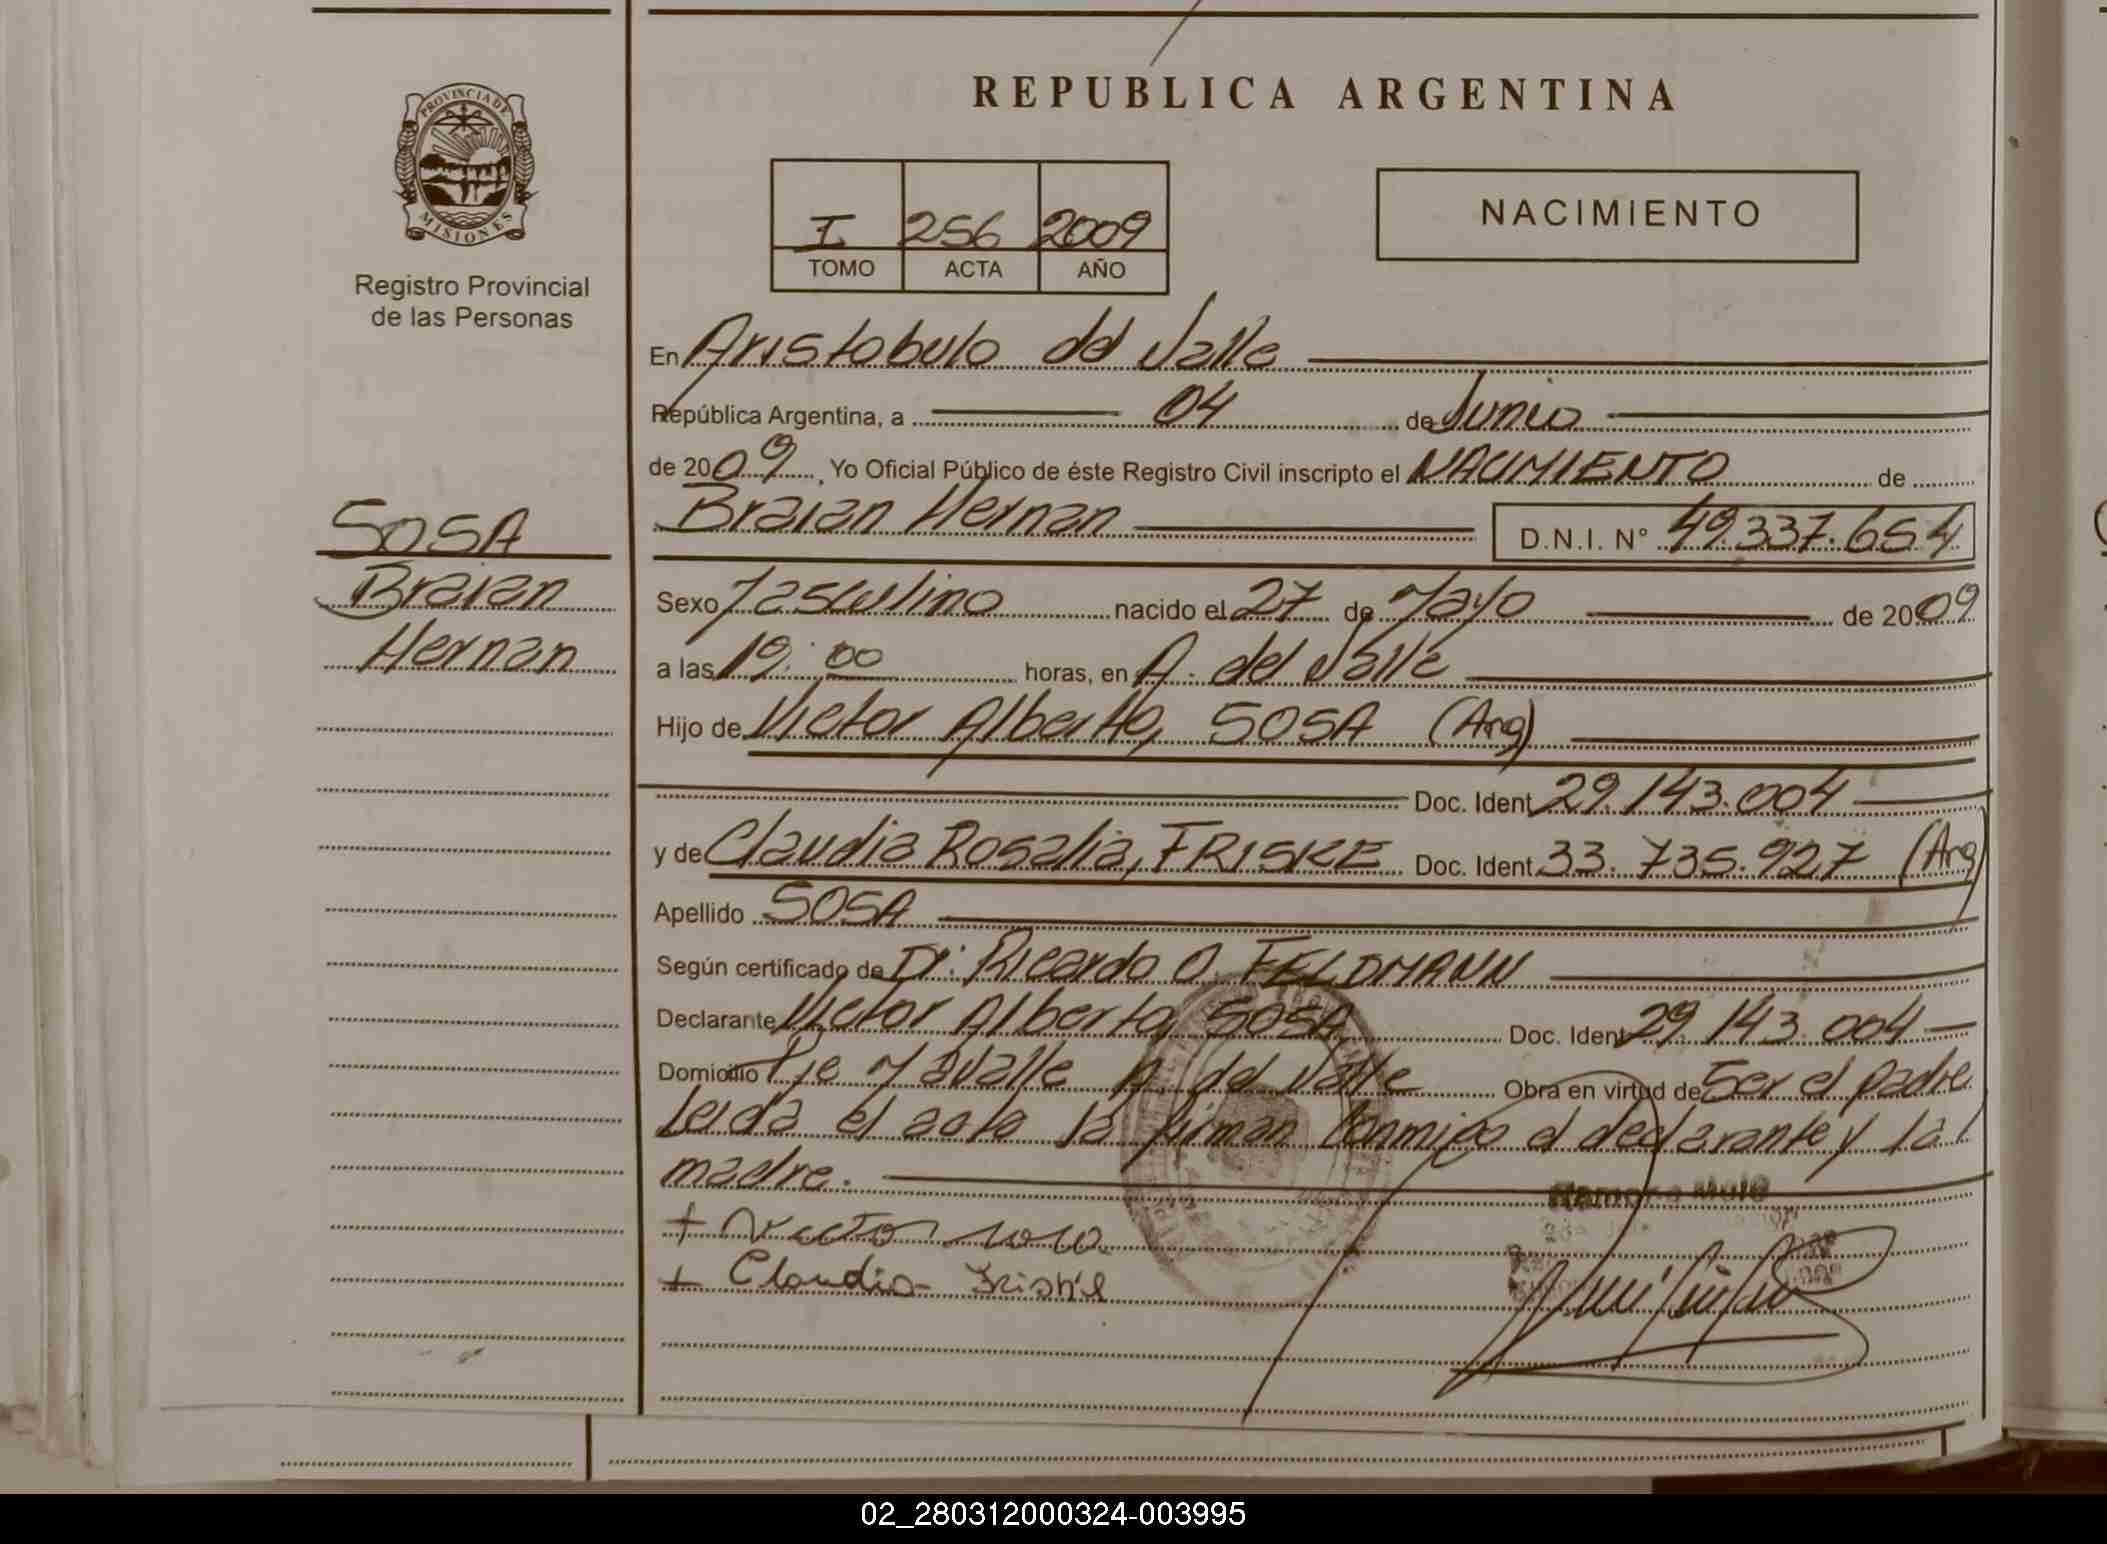 REPUBLICA ARGENTINA
PROVINCIA DE
MISIONES
Registro Provincial
de las Personas
I 256 2009
TOMO ACTA AÑO
NACIMIENTO
SOSA
Braian
Hernan
En Aristobulo del Valle
República Argentina, a 04 de Junio
de 2009, Yo Oficial Público de éste Registro Civil inscripto el NACIMIENTO de
Braian Hernan D.N.I. N° 49.337.654
Sexo Masculino nacido el 27 de Mayo de 2009
a las 19:00 horas, en A. del Valle
Hijo de Victor Alberto, SOSA (Arg)
Doc. Ident 29.143.004
y de Claudia Rosalia, FRISKE Doc. Ident 33.735.927 (Arg)
Apellido SOSA
Según certificado de Dr. Ricardo O. FELDMANN
Declarante Victor Alberto, SOSA Doc. Ident 29.143.004
Domicilio A. del Valle Obra en virtud de Ser el padre
Leida el acta la firman conmigo el declarante y la
madre.
+ Victor sosa
+ Claudia Friske
02_280312000324-003995